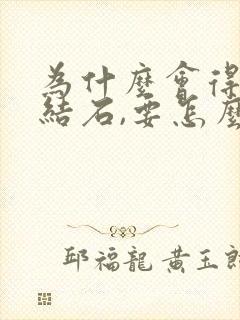 為什麼會得
結石,要怎麼
邱福龍 黃玉郎